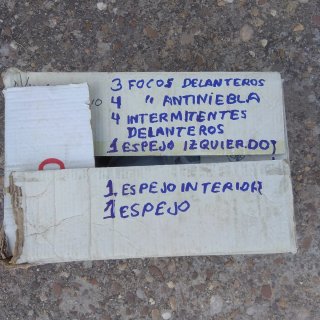 3 FOCOS DELANTEROS
4 " ANTINIEBLA
4 INTERMITENTES
DELANTEROS
1 ESPEJO IZQUIERDO
1. ESPEJO INTERIOR
1 ESPEJO